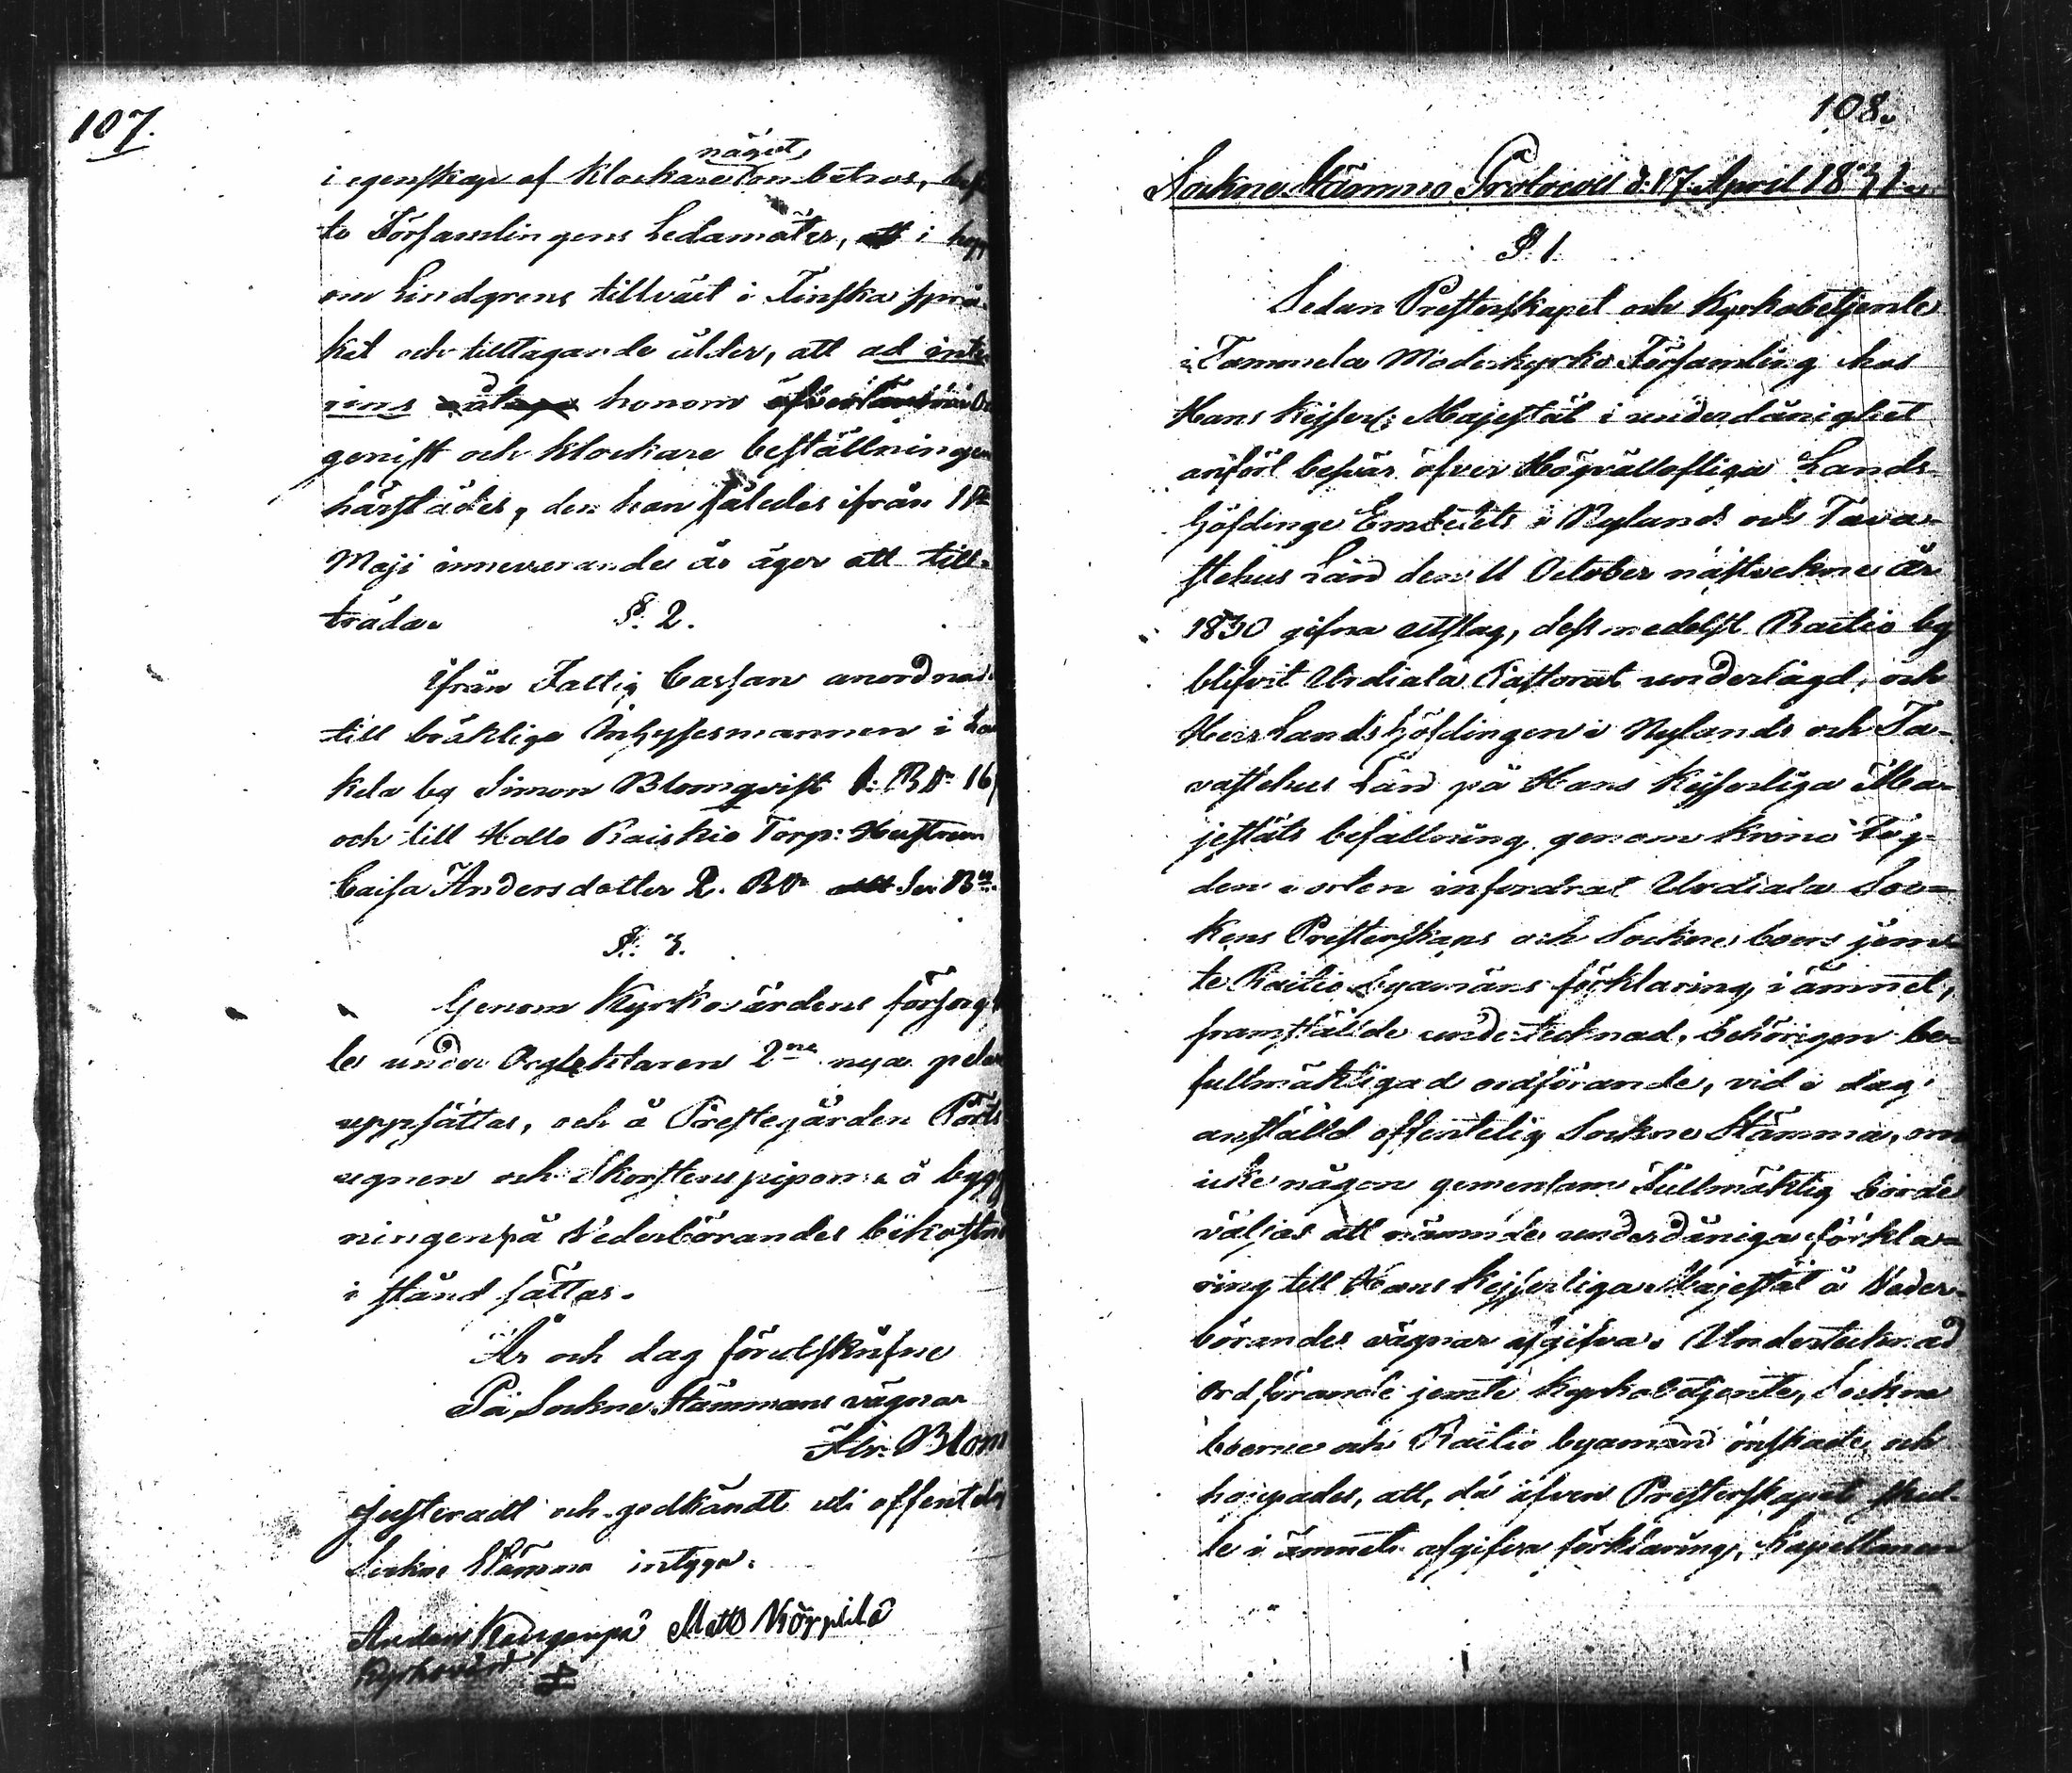 107.
något
i egenskap af Klockare ombetros,
te Församlingens Ledamöter, i hopp
om Lindgrens tillväxt i Finska språ-
ket och tilltagande ålder, att ad inte-
rims honom Or
genist och Klockare beställningen
härstädes, den han således ifrån 1sta
Maji innevarande år äger att till-
träda.
§. 2.
Ifrån Fattig Cassan anordnas
till bräklige Inhysesmannen i
kela by Simon Blomqvist 1. Rd
och till Hollo Raiskio Torp: Hustrun
Caisa Andersdotter 2. Rd
§. 3.
Genom Kyrkovärdens försorg
les under Orglektaren 2ne nya
uppsättas, och å Prestegården
ugnen och Skorstens piporna å bygg
ningen på Vederbörandes bekostn
i stånd sättas.
År och dag förutskrifne
På Sockne Stämmans vägnar
Abr. Blom
Justeradt och godkändt uti offentelig
Sockne Stämma intyga.
Anders Matts Körpilä
Kyrkovärd
108.
Sockne Stämmo Protocoll d: 17 April 1831.
§. 1.
Sedan Presterskapet och Kyrkobetjente
i Tammela Moderkyrko Församling hos
Hans Kejserl: Majestät i underdånighet
anfört besvär öfver Högvällofliga Lands-
höfdinge Embetets i Nylands och Tava-
stehus Län den 11 October nästvekne år
1830 gifna utslag, dessmedelst Raitio by
blifvit Urdiala Pastorat underlagd, och
Herr Landshöfdingen i Nylands och Ta-
vastehus Län på Hans Kejserliga Ma-
jestäts befallning genom Krono Fog-
den i orten infordrat Urdiala Soc-
kens Presterskaps och Sockne boers jem-
te Raitio byamäns förklaring i ämnet,
framstälde undertecknad, behörigen be-
fullmäktigad ordförande, vid i dag
anstäld offentelig Sockne Stämma, om
icke någon gemensam Fullmäktig borde
väljas att nämnde underdåniga förkla-
ring till Hans Kejserliga Majestät å Veder-
börandes vägnar afgifva. Undertecknad
Ordförande jemte Kyrkobetjente, Sockne
boerne och Raitio byamän önskade och
hoppades, att, då äfven Presterskapet skul-
le i ämnet afgifva förklaring, Kapellanen